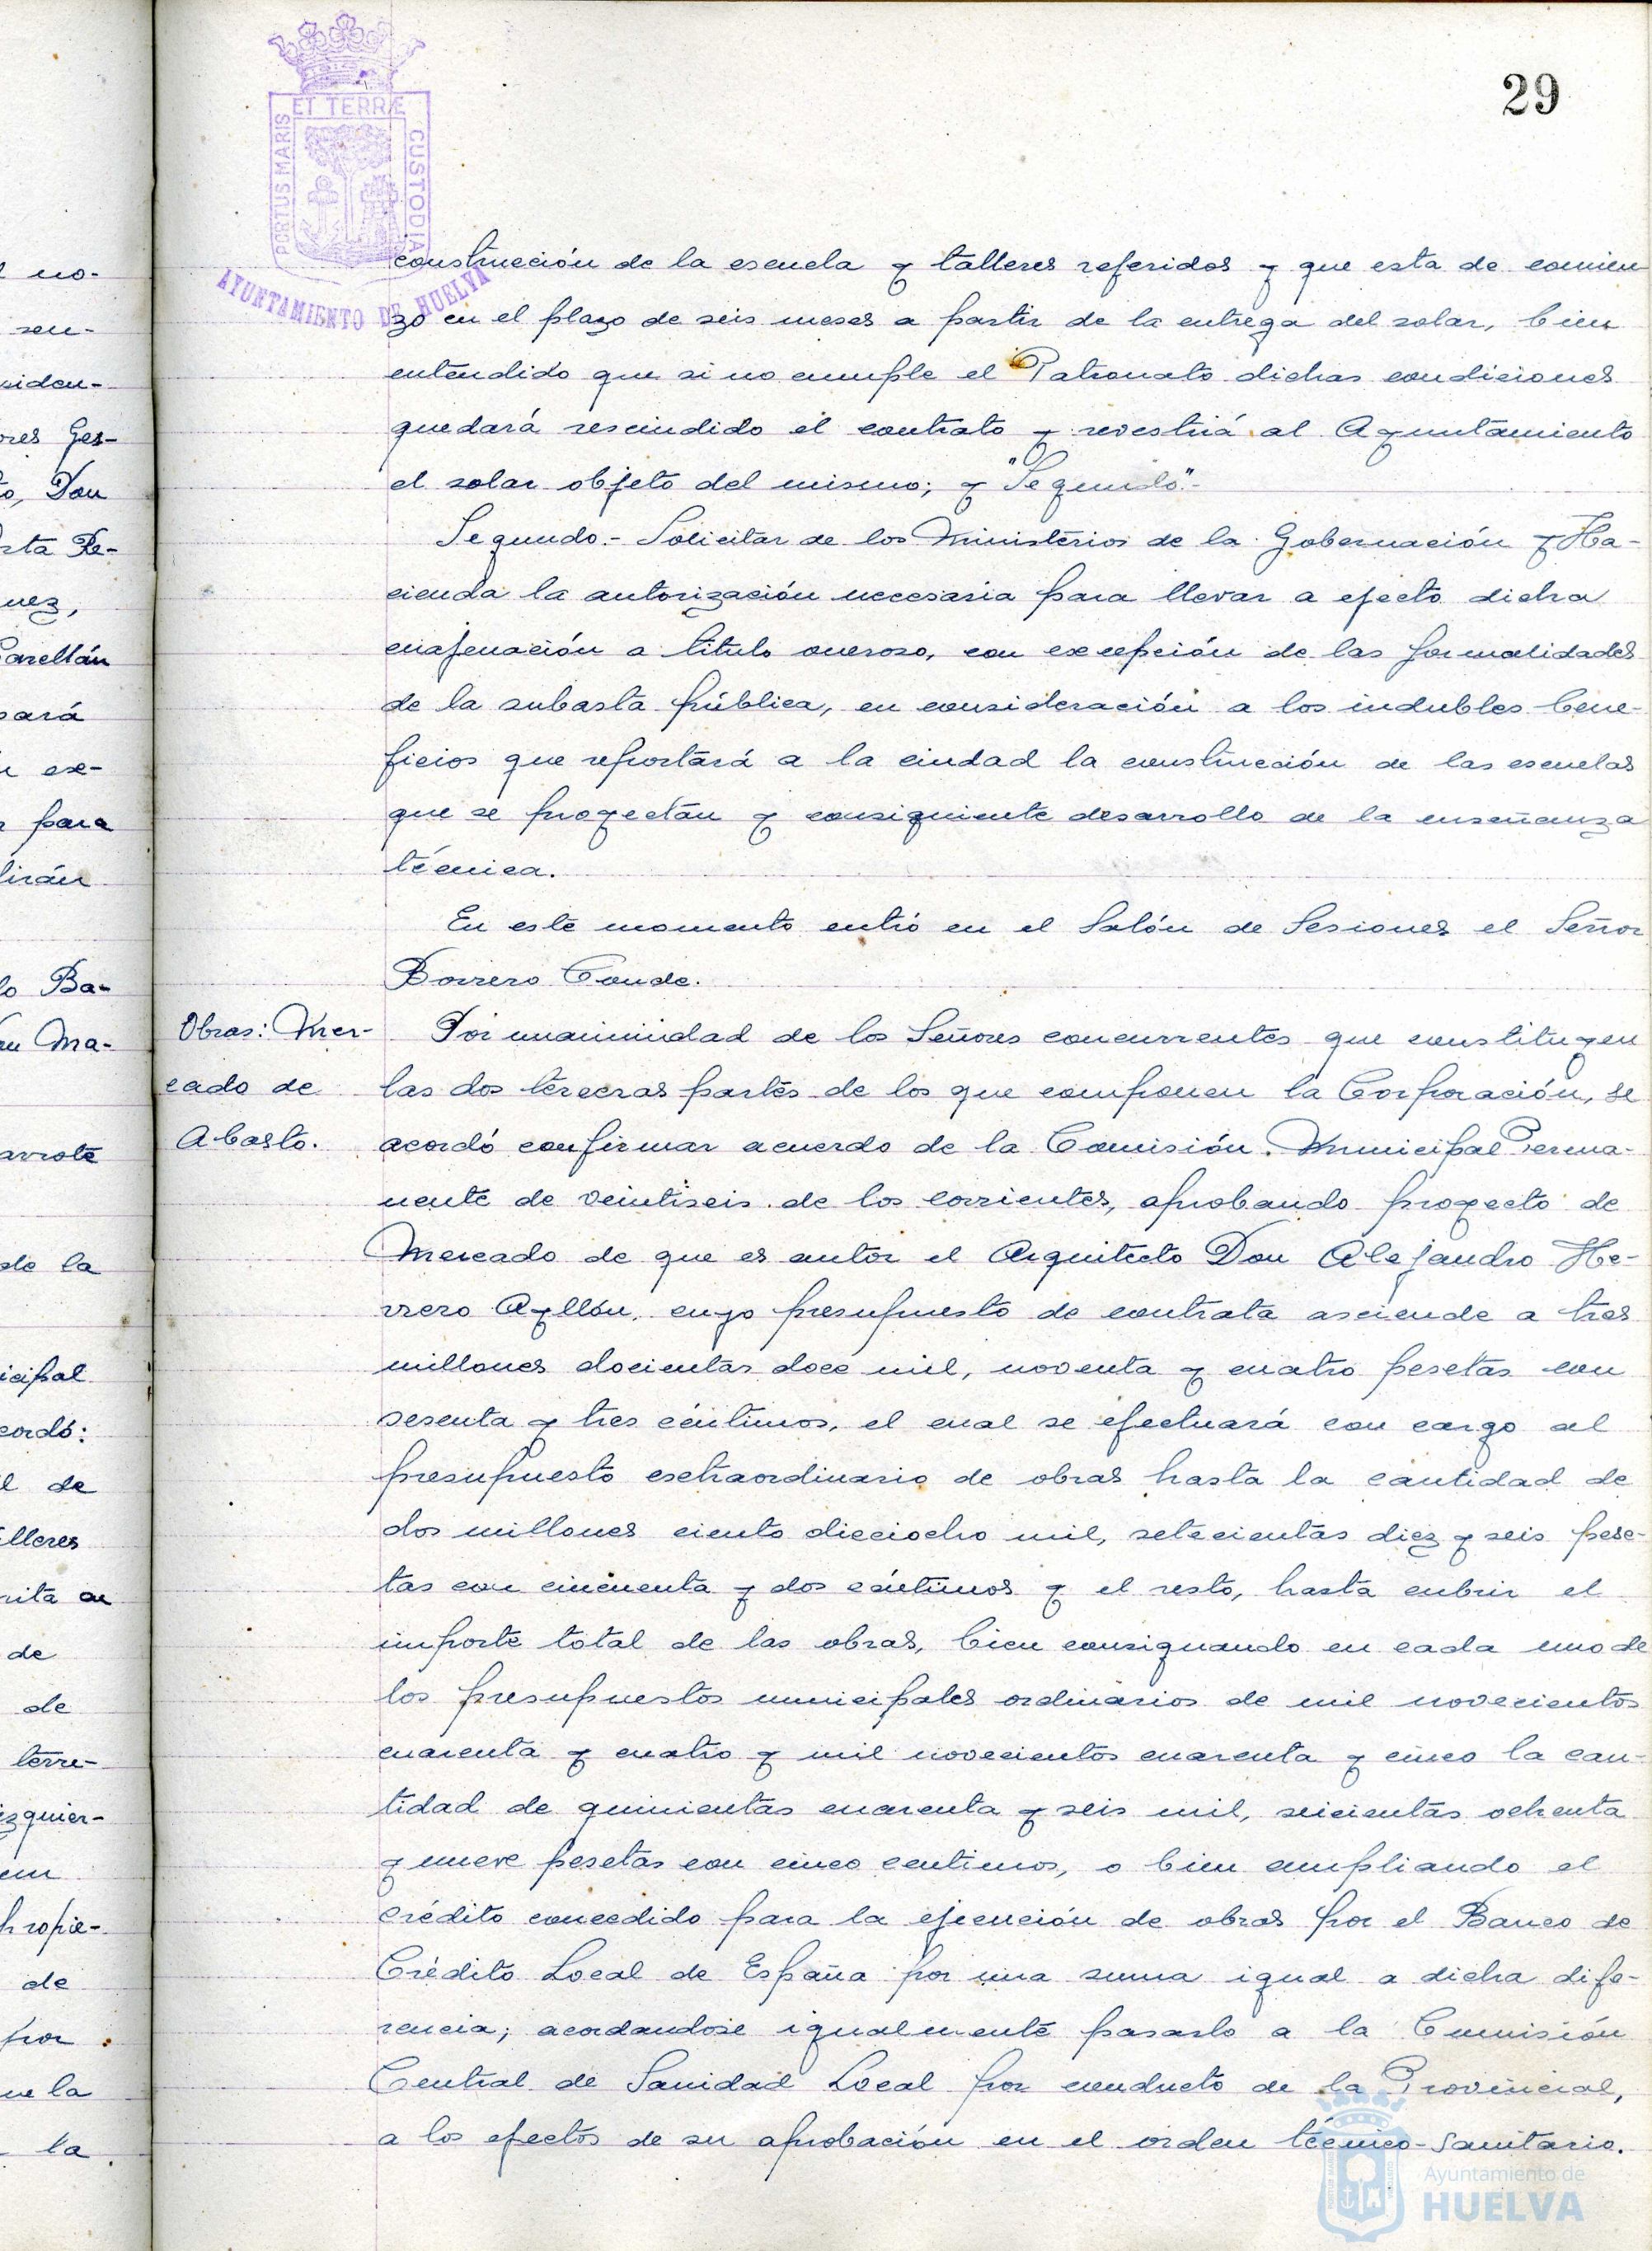 29
PORTUS MARIS ET TERRÆ CUSTODIA
AYUNTAMIENTO DE HUELVA
construcción de la escuela y talleres referidos y que esta de comien
zo en el plazo de seis meses a partir de la entrega del solar, bien
entendido que si no cumple el Patronato dichas condiciones
quedará rescindido el contrato y revestirá al Ayuntamiento
el solar objeto del mismo; y "Segundo".-
Segundo.- Solicitar de los Ministerios de la Gobernación y Ha-
cienda la autorización necesaria para llevar a efecto dicha
enajenación a titulo oneroso, con excepción de las formalidades
de la subasta pública, en consideración a los indubles bene-
ficios que reportará a la ciudad la construcción de las escuelas
que se proyectan y consiguiente desarrollo de la enseñanza
técnica.
En este momento entró en el Salón de Sesiones el Señor
Borrero Conde.
Obras: Mer-
cado de
Abasto.
Por unanimidad de los Señores concurrentes que constituyen
las dos terceras partes de los que componen la Corporación, se
acordó confirmar acuerdo de la Comisión Municipal Perma-
nente de veintiseis de los corrientes, aprobando proyecto de
Mercado de que es autor el Arquitecto Don Alejandro He-
rrero Ayllón, cuyo presupuesto de contrata asciende a tres
millones docientas doce mil, noventa y cuatro pesetas con
sesenta y tres céntimos, el cual se efectuará con cargo al
presupuesto extraordinario de obras hasta la cantidad de
dos millones ciento dieciocho mil, setecientas diez y seis pese-
tas con cincuenta y dos céntimos y el resto, hasta cubrir el
importe total de las obras, bien consignando en cada uno de
los presupuestos municipales ordinarios de mil novecientos
cuarenta y cuatro y mil novecientos cuarenta y cinco la can-
tidad de quinientas cuarenta y seis mil, seicientas ochenta
y nueve pesetas con cinco centimos, o bien ampliando el
crédito concedido para la ejecución de obras por el Banco de
Crédito Local de España por una suma igual a dicha dife-
rencia; acordandose igualmente pasarlo a la Comisión
Central de Sanidad Local por conducto de la Provincial,
a los efectos de su aprobación en el orden técnico-sanitario.
Ayuntamiento de
HUELVA